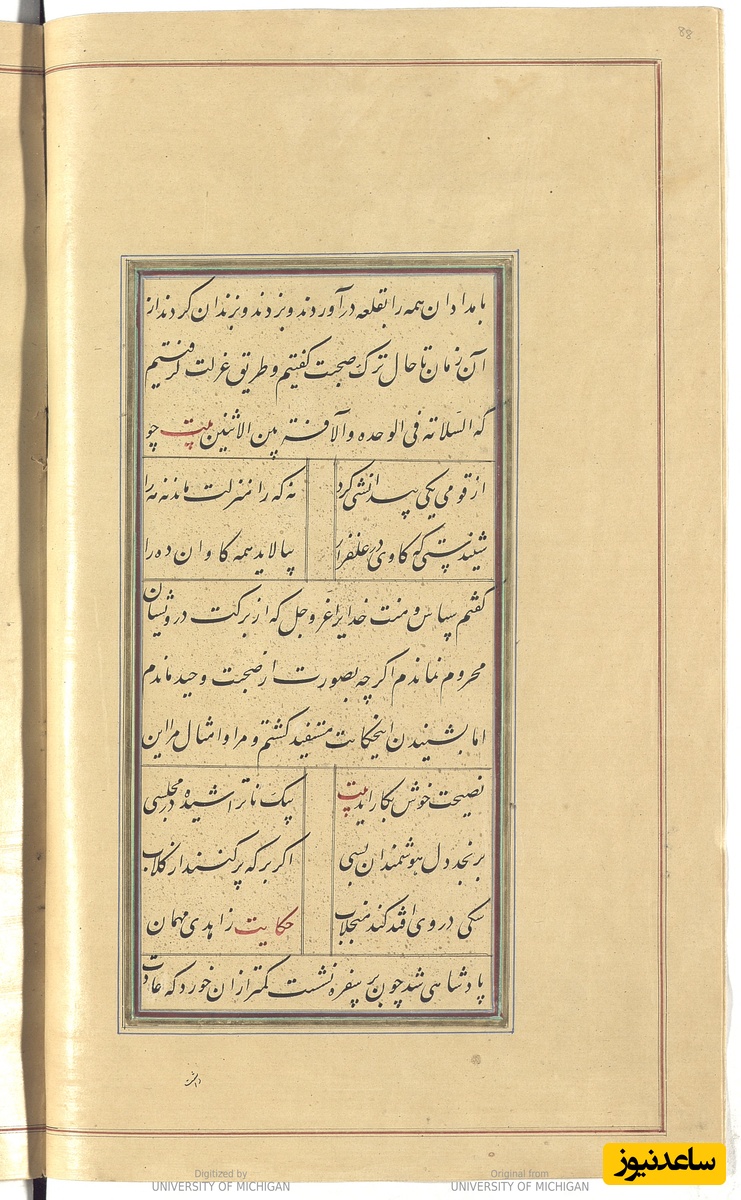 88
بامدادان همه را بقلعه درآوردند و بزدند و بزندان کردند از
آن زمان تا حال ترک صحبت گفتیم و طریق عزلت گرفتیم
که السلامة فی الوحده والآفة بین الاثنین بیت چو
از قومی یکی بیدانشی کرد نه که را منزلت ماند نه مه را
شنیدستی که گاوی در علفزار بیالاید همه گاوان ده را
گفتم سپاس و منت خدایرا عز وجل که از برکت درویشان
محروم نماندم اگرچه بصورت از صحبت وحید ماندم
اما بشنیدن اینحکایت مستفید گشتم و مرا و امثال مرا این
نصیحت خوش بکار اید بیت بیک ناتراشیده در مجلسی
برنجد دل هوشمندان بسی اگر برکه پر کنند از گلاب
سگی در وی افتد کند منجلاب حکایت زاهدی مهمان
پادشاهی شد چون بر سفره نشست کمتر از ان خورد که عادت
داشت
ساعدنیوز
Digitized by
UNIVERSITY OF MICHIGAN
Original from
UNIVERSITY OF MICHIGAN